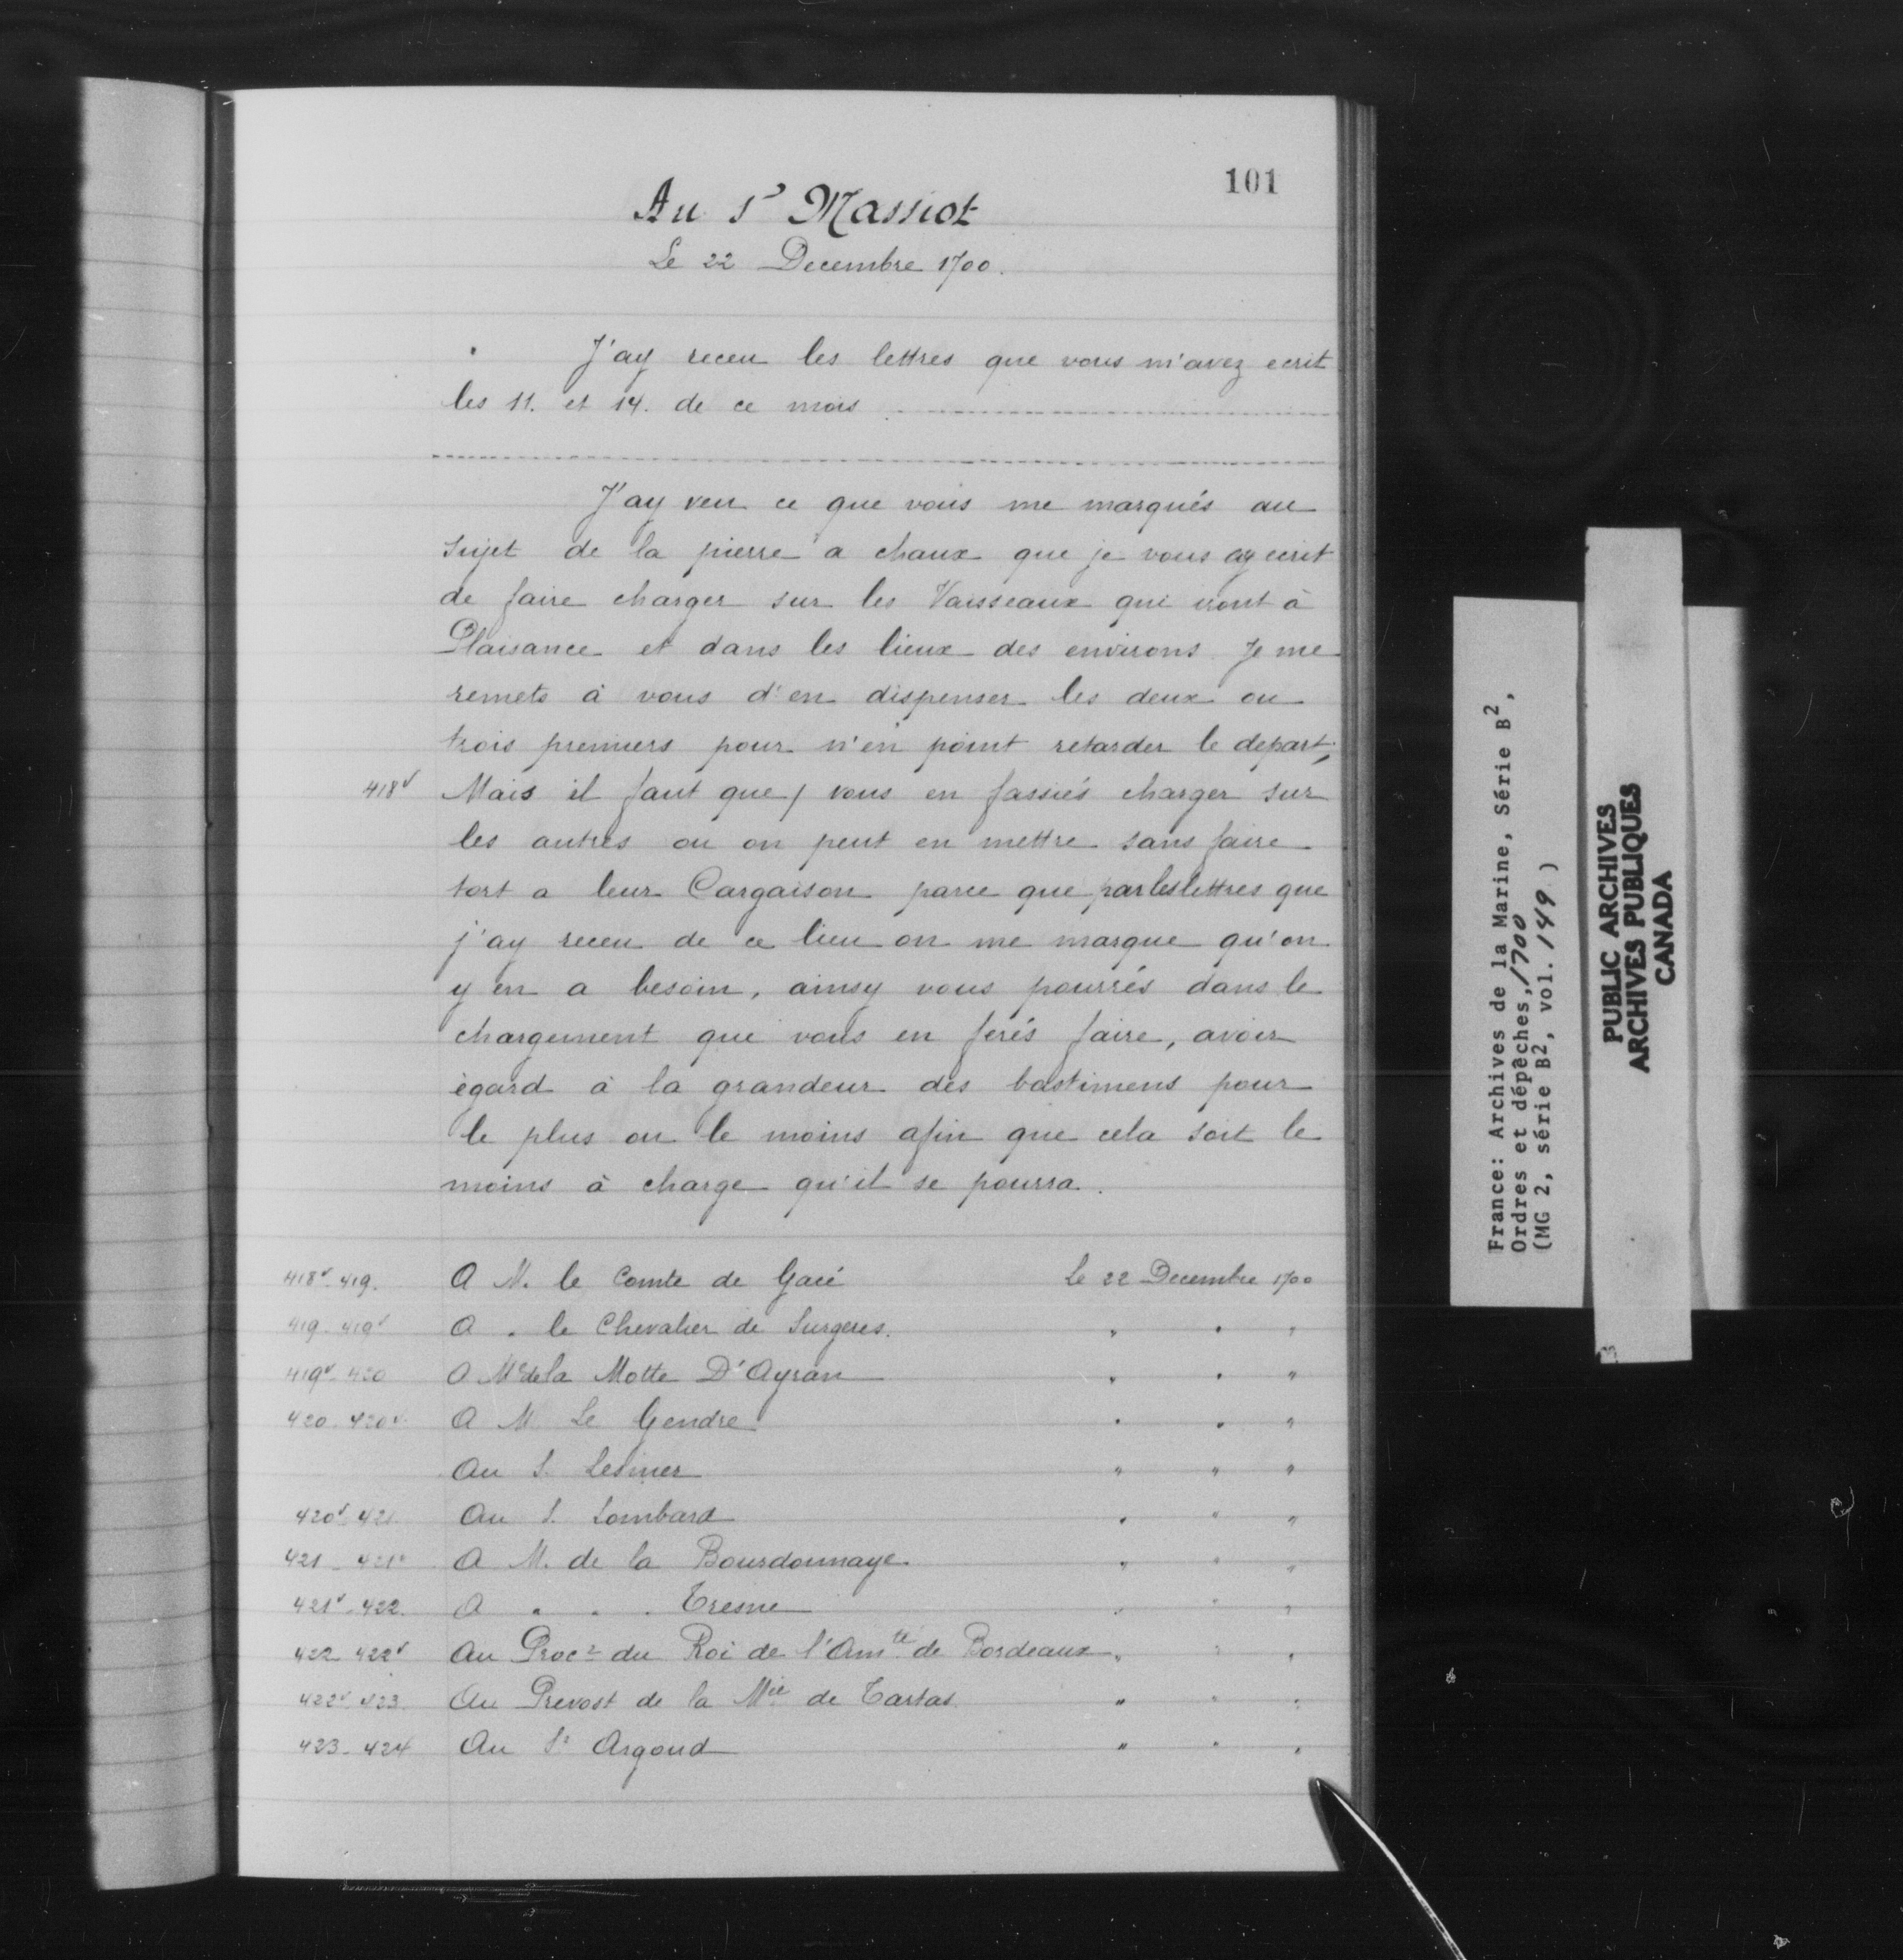 101
Au Sr Massiot
Le 22 Decembre 1700.
J'ay receu les lettres que vous m'avez ecrit
les 11. et 14. de ce mois
J'ay veu ce que vous me marqués au
sujet de la pierre a chaux que je vous ay ecrit
de faire charger sur les Vaisseaux qui iront à
Plaisance et dans les lieux des environs Je me
remets à vous d'en dispenser les deux ou
trois premiers pour n'en point retarder le depart;
418v Mais il faut que / vous en fassiés charger sur
les autres ou on peut en mettre sans faire
tort a leur Cargaison parce que par les lettres que
j'ay receu de ce lieu on me marque qu'on
y en a besoin, ainsy vous pourrés dans le
chargement que vous en ferés faire, avoir
égard à la grandeur des bastimens pour
le plus ou le moins afin que cela soit le
moins à charge qu'il se pourra.
418v-419. A M. le Comte de Gacé Le 22 Decembre 1700
419-419v A " le Chevalier de Surgeres. " " "
419v-420 A Mr de la Motte D'Ayran " " "
420-420v A M Le Gendre " " "
Au S. " " "
420v-421 Au S. Lombard " " "
421-421v A M. de la Bourdonnaye " " "
421v-422. A " " " Tresne " " "
422-422v Au Procr du Roi de l'Amté de Bordeaux " " "
422v-423. Au Prevost de la Mée de Tartas " " "
423-424 Au Sr Argoud " " "
France: Archives de la Marine, Série B2,
Ordres et dépêches, 1700
(MG 2, série B2, vol. 149 )
PUBLIC ARCHIVES
ARCHIVES PUBLIQUES
CANADA